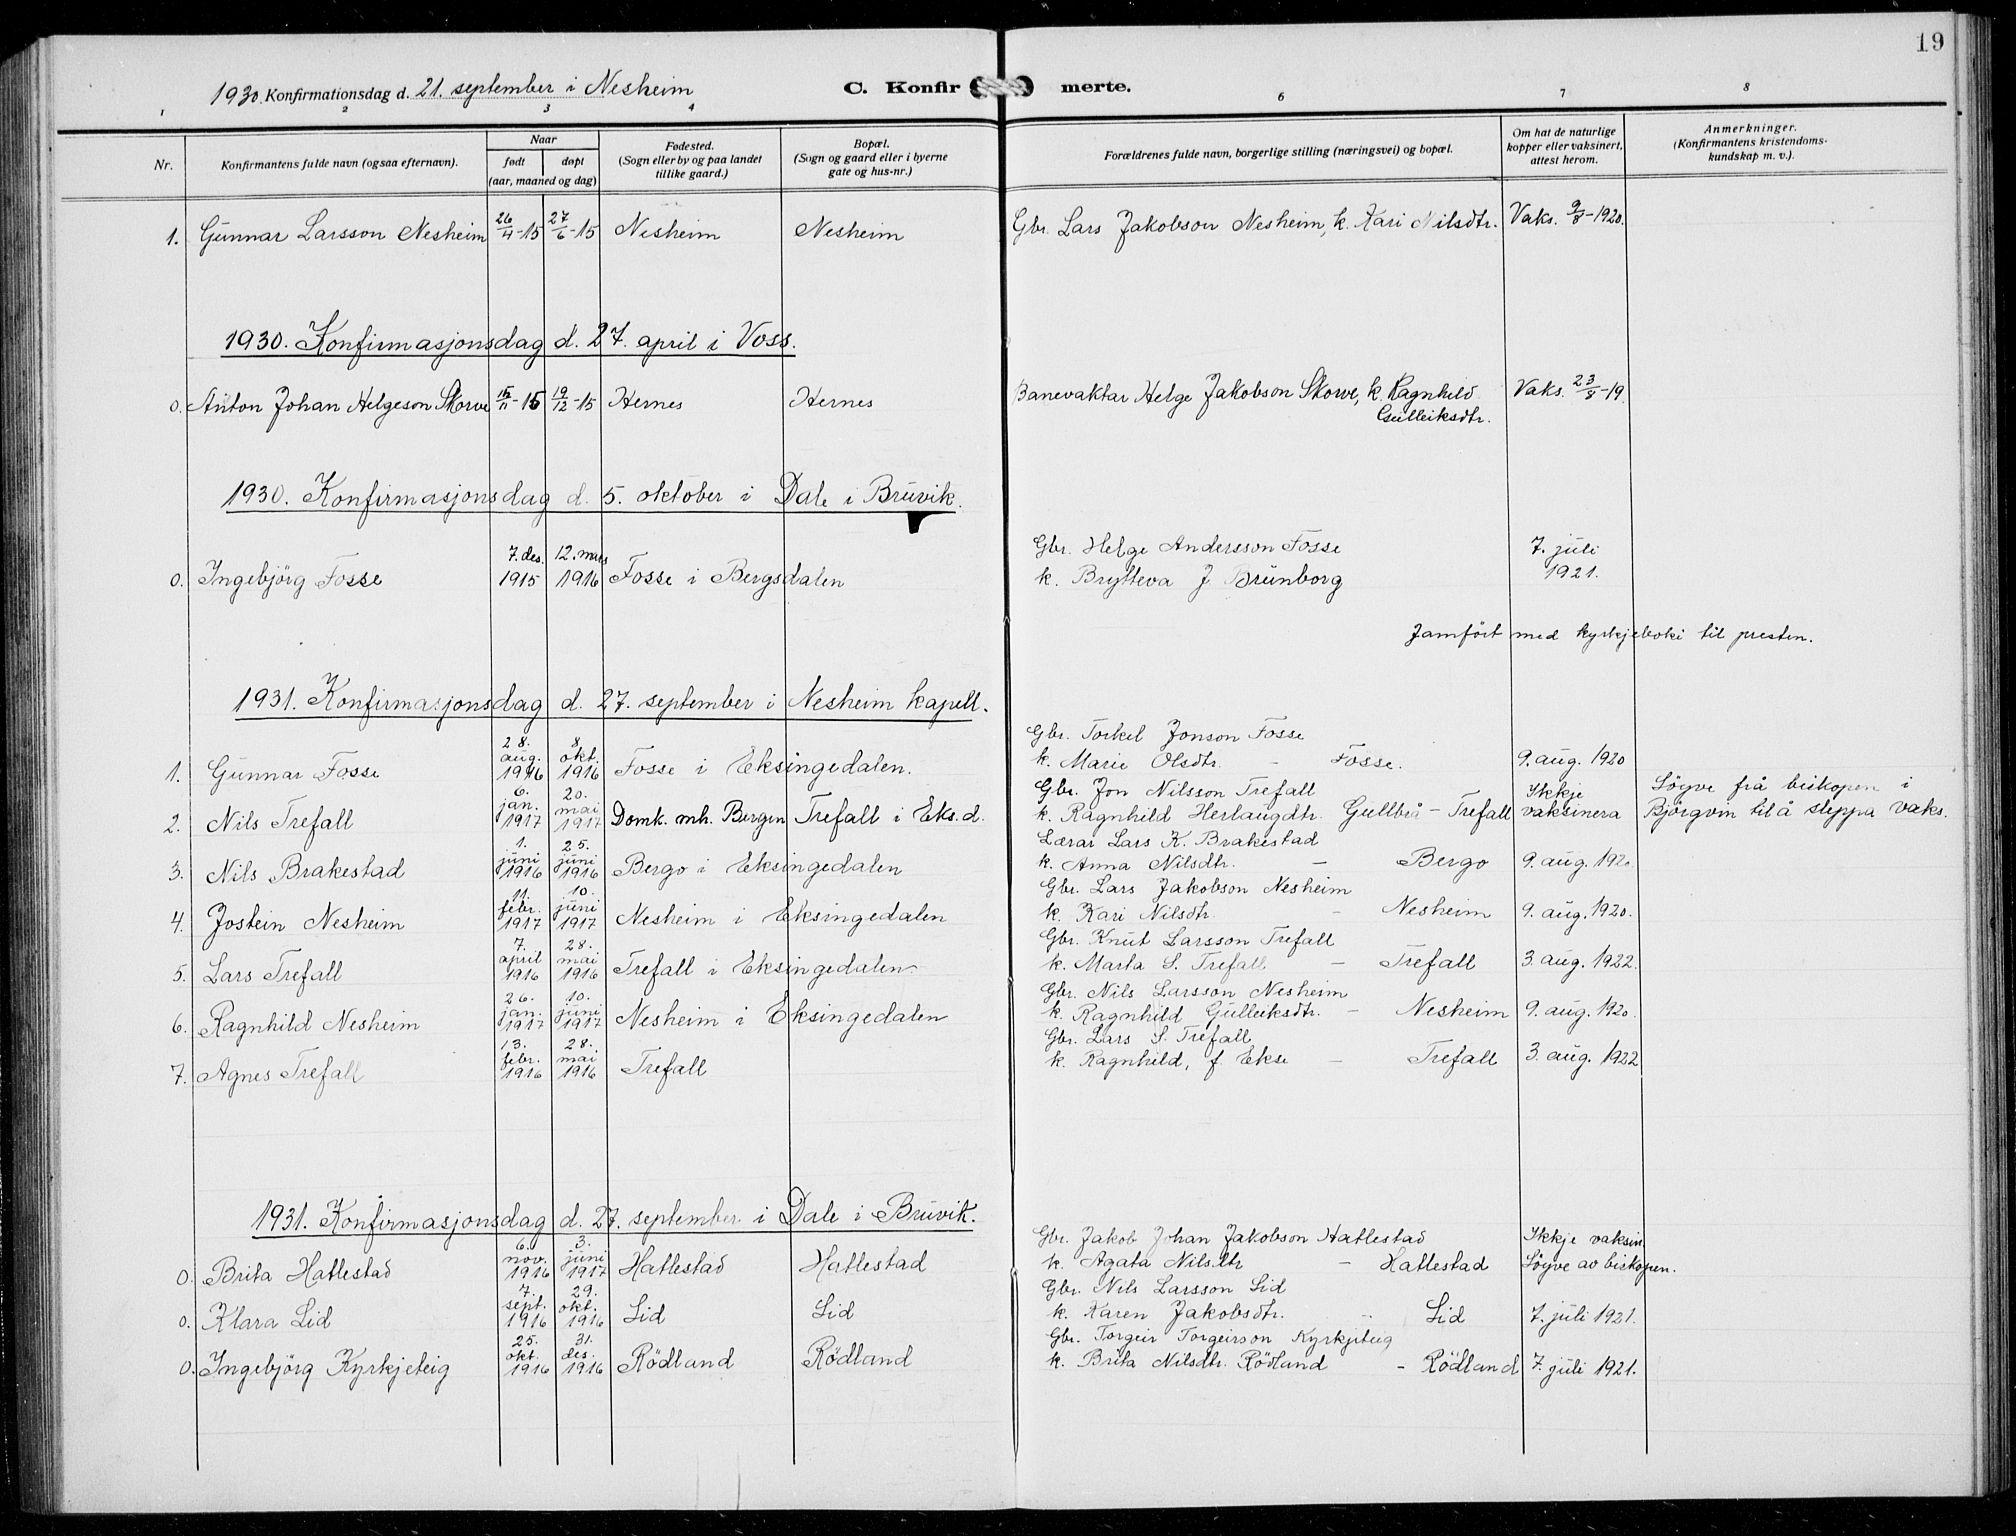 19
1930. Konfirmationsdag d. 21. september i Nesheim
C. Konfirmerte.
1 2 3 4 6 7 8
Nr.
Konfirmantens fulde navn (ogsaa efternavn).
Naar
født døpt
(aar, maaned og dag)
Fødested.
(Sogn eller by og paa landet
tillike gaard.)
Bopæl.
(Sogn og gaard eller i byerne
gate og hus-nr.)
Forældrenes fulde navn, borgerlige stilling (næringsvei) og bopæl.
Om hat de naturlige
kopper eller vaksinert,
attest herom.
Anmerkninger.
(Konfirmantens kristendoms-
kundskap m. v.).
1. Gunnar Larsson Nesheim 26/4-15 27/6-15 Nesheim Nesheim Gbr. Lars Jakobson Nesheim, k. Kari Nilsdtr. Vaks. 9/8-1920.
1930. Konfirmasjonsdag d. 27. april i Voss.
0. Anton Johan Helgeson Skorve 15/11-15 19/12-15 Hernes Hernes Banevaktar Helge Jakobson Skorve, k. Ragnhild Vaks. 23/8-19.
Gulleiksdtr.
1930. Konfirmasjonsdag d. 5. oktober i Dale i Bruvik.
7. des. 12. mars Gbr. Helge Andersson Fosse 7. juli
0. Ingebjörg Fosse 1915 1916 Fosse i Bergsdalen k. Brytteva J. Brunborg 1921.
Jamfört med kyrkjeboki til presten.
1931. Konfirmasjonsdag d. 27. september i Nesheim kapell.
28. 8. Gbr. Torkel Jonson Fosse
aug. okt.
1. Gunnar Fosse 1916 1916 Fosse i Eksingedalen. k. Marie Olsdtr. - Fosse. 9. aug. 1920
6. 20. Gbr. Jon Nilsson Trefall Ikkje Löyve frå biskopen i
jan. mai
2. Nils Trefall 1917 1917 Domk. mh. Bergen Trefall i Eks.d. k. Ragnhild Herlaugdtr. Gullbrå - Trefall vaksinera Björgvin til å sleppa vaks.
1. 25. Lærar Lars K. Brakestad
juni juni
3. Nils Brakestad 1916 1916 Bergo i Eksingedalen k. Anna Nilsdtr. - Bergo 9. aug. 1920
11. 10. Gbr. Lars Jakobson Nesheim
febr. juni
4. Jostein Nesheim 1917 1917 Nesheim i Eksingedalen k. Kari Nilsdtr. - Nesheim 9. aug. 1920.
7. 28. Gbr. Knut Larsson Trefall
april mai
5. Lars Trefall 1916 1916 Trefall i Eksingedalen k. Marta S. Trefall - Trefall 3. aug. 1922.
26. 10. Gbr. Nils Larsson Nesheim
jan. juni
6. Ragnhild Nesheim 1917 1917 Nesheim i Eksingedalen k. Ragnhild Gulleiksdtr. - Nesheim 9. aug. 1920.
13. 28. Gbr. Lars S. Trefall
febr. mai
7. Agnes Trefall 1916 1916 Trefall k. Ragnhild, f. Ekse - Trefall 3. aug. 1922
1931. Konfirmasjonsdag d. 27. september i Dale i Bruvik.
6. 3. Gbr. Jakob Johan Jakobson Hatlestad Ikkje vaksin.
nov. juni
0. Brita Hatlestad 1916 1917 Hatlestad Hatlestad k. Agata Nilsdtr - Hatlestad Löyve av biskopen.
7. 29. Gbr. Nils Larsson Lid
sept. okt.
0. Klara Lid 1916 1916 Lid Lid k. Karen Jakobsdtr. - Lid 7. juli 1921.
25. 31. Gbr. Torgeir Torgeirson Kyrkjeteig
okt. des.
0. Ingebjörg Kyrkjeteig 1916 1916 Rödland Rödland k. Brita Nilsdtr. Rödland - Rödland 7. juli 1921.